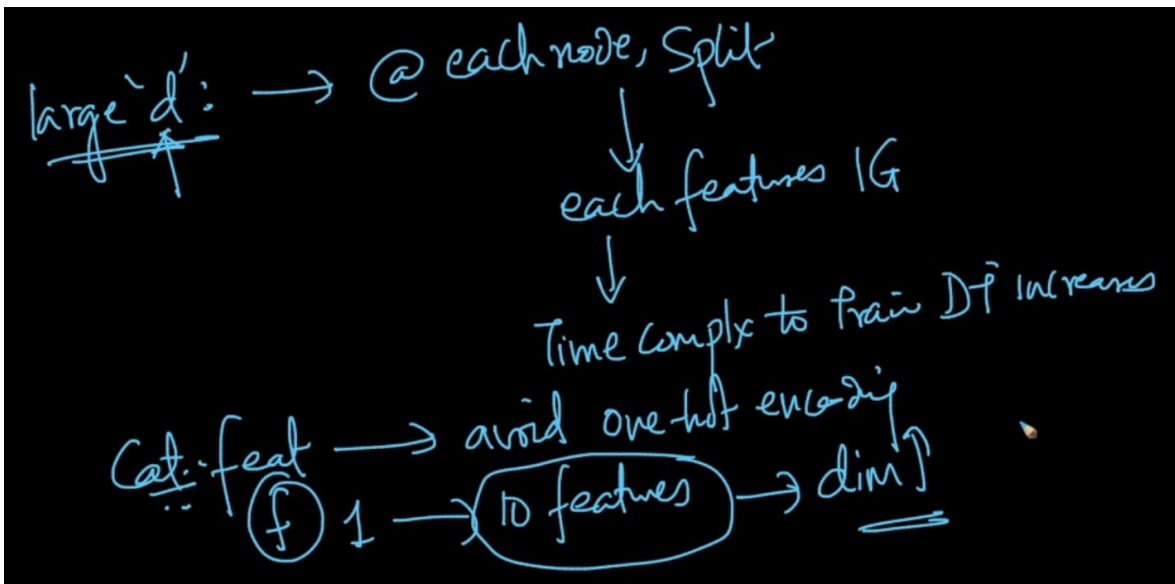 large 'd': → @ each node, Split
each features IG
Time complx to Train DT increases
Cat. feat → avoid one-hot encoding
f 1 → 10 features → dim↑